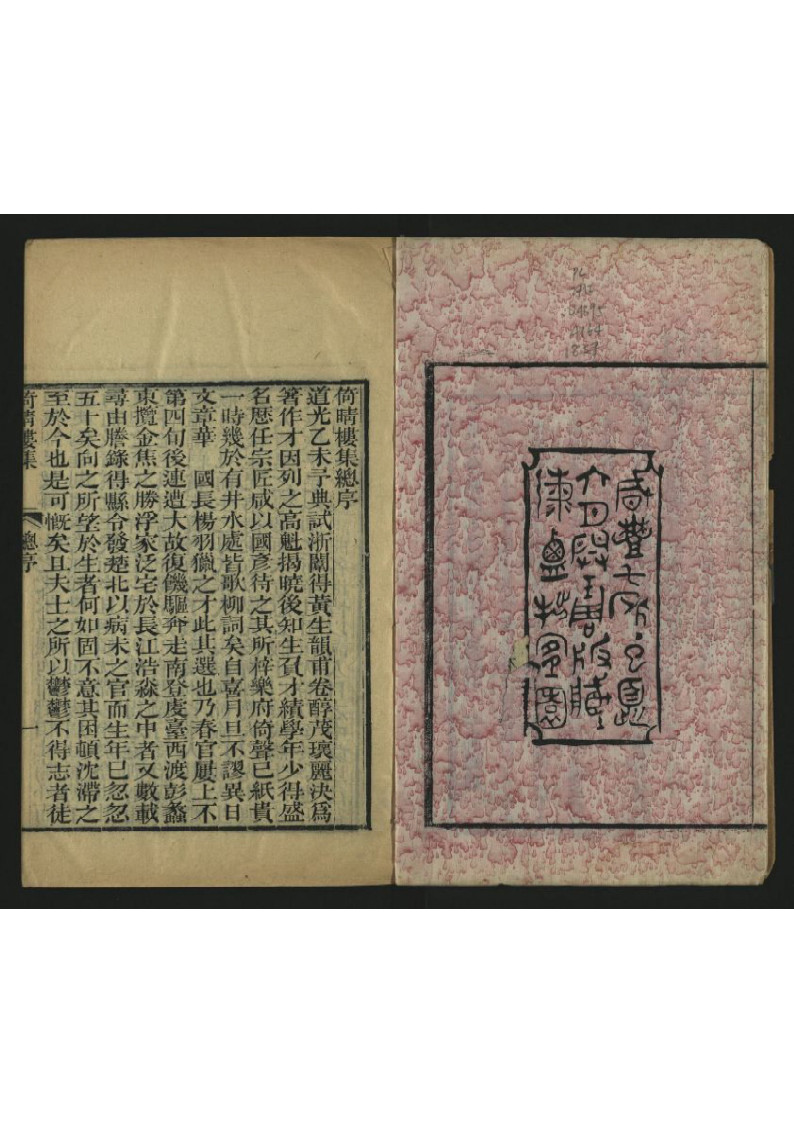 PL
1857
咸豐七年
版藏
海鹽拙宜園
倚晴樓集總序
道光乙未予典試浙闈得黃生韻甫卷醇茂瓌麗決為
著作才因列之高魁揭曉後知生負才績學年少得盛
名歷任宗匠咸以國彥待之其所梓樂府倚聲已紙貴
一時幾於有井水處皆歌柳詞矣自嘉月旦不謬異日
文章華　國長楊羽獵之才此其選也乃春官屢上不
第四旬後連遭大故復饑驅奔走南登虔臺西渡彭蠡
東攬金焦之勝浮家泛宅於長江浩淼之中者又數載
尋由謄錄得縣令發楚北以病未之官而生年已忽忽
五十矣向之所望於生者何如固不意其困頓沈滯之
至於今也是可慨矣且夫士之所以鬱鬱不得志者徒
倚晴樓集
總序
一